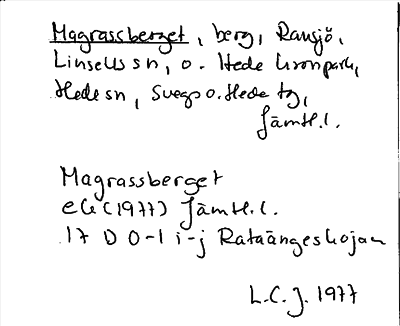 Magrassberget, berg, Ransjö,
Linsells sn, o. Hede kronpark,
Hede sn, Svegs o. Hede tg,
Jämtl. l.
Magrassberget
eG (1977) Jämtl. l.
17 D 0-1 i-j Rataängeskojan
L.C.J. 1977